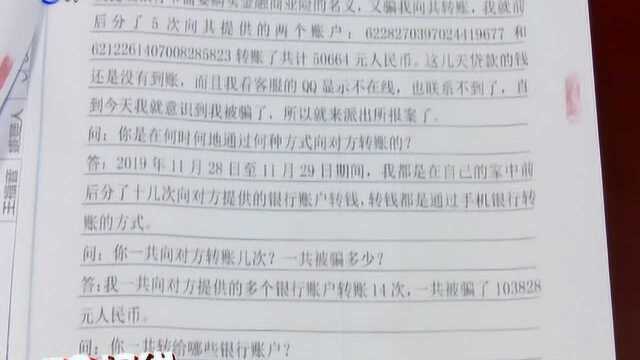 需要购买金融商业险的名义，又骗我向其转账，我就前
后分了5次向其提供的两个账户：6228270397024419677 和
6212261407008285823 转账了共计 50664 元人民币。这几天贷款的钱
还是没有到账，而且我看客服的QQ显示不在线，也联系不到了，直
到今天我就意识到我被骗了，所以就来派出所报案了。
问：你是在何时何地通过何种方式向对方转账的？
答：2019 年 11 月 28 日至 11 月 29 日期间，我都是在自己的家中前
后分了十几次向对方提供的银行账户转钱，转钱都是通过手机银行转
账的方式。
问：你一共向对方转账几次？一共被骗多少？
答：我一共向对方提供的多个银行账户转账 14 次，一共被骗了 103828
元人民币。
问：你一共转给哪些银行账户？